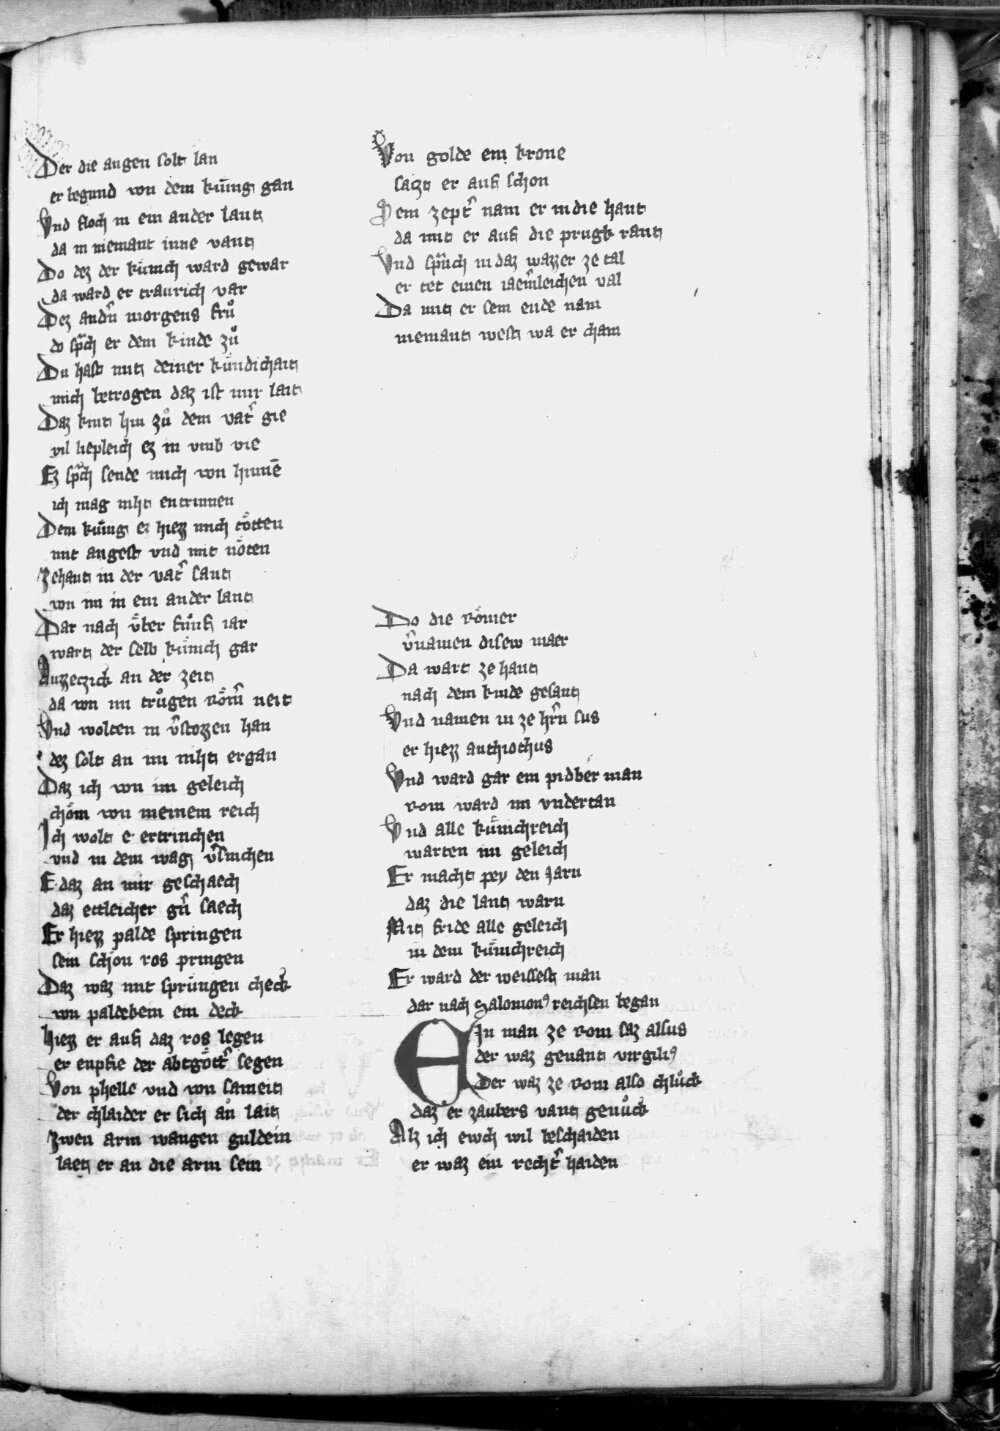 Der die augen solt lan
er begund von dem künig gan
Vnd floch in ein ander lant
da in niemant inne vant
Do dez der künich ward gewar
da ward er traurich var
Dez andn̄ morgens frů
do spͣch er dem kinde zů
Du hast mit deiner kündichait
mich betrogen daz ist mir lait
Daz kint hin zů dem vat̾ gie
vil liepleich ez in vmb vie
Ez spͣch sende mich von hinnē
ich mag niht entrinnen
Dem künig er hiezz mich tötten
mit angest vnd mit nöten
Zehant in der vat̾ sant
von im in ein ander lant
Dar nach über fünf iar
wart der selb künich gar
Auzzeczick an der zeit
da von im trůgen Röm̾ neit
Vnd wolten in v̾stozzen han
dez solt an im niht ergan
Daz ich von im geleich
chöm von meinem reich
Ich wolt e ertrinchen
vnd in dem wag v̾sinchen
E daz an mir geschaech
daz ettleicher gn̄ saech
Er hiezz palde springen
sein schon ros pringen
Daz waz mit sprüngen check
von paldebein ein deck
hiezz er auf daz ros legen
er enpfie der abtgött̾ segen
Von phelle vnd von sameit
der chlaider er sich an lait
Zwen arm wangen guldein
laet er an die arm sein
Von golde ein krone
saczt er auf schon
Dem zept̾ nam er in die hant
da mit er auf die prugk rant
Vnd spͣnch in daz wazzer ze tal
er tet einen iaem̾leichen val
Da mit er sein ende nam
niemant west wa er cham
Do die Römer
v̾namen disew maer
Da wart ze hant
nach dem kinde gesant
Vnd namen in ze hr̄n sus
er hiezz anthiochus
Vnd ward gar ein pidber man
Rom ward im vndertan
Vnd alle künichreich
warten im geleich
Er macht pey den jarn
daz die lant warn
Mit fride alle geleich
in dem künichreich
Er ward der weissest man
dar nach Salomonꝰ reichsen began
Ein man ze Rom saz alsus
der waz genant virgiliꝰ
Der waz ze Rom also chlůck
daz er zaubers vant genůck
Alz ich ewch wil beschaiden
er waz ein recht̾ haiden